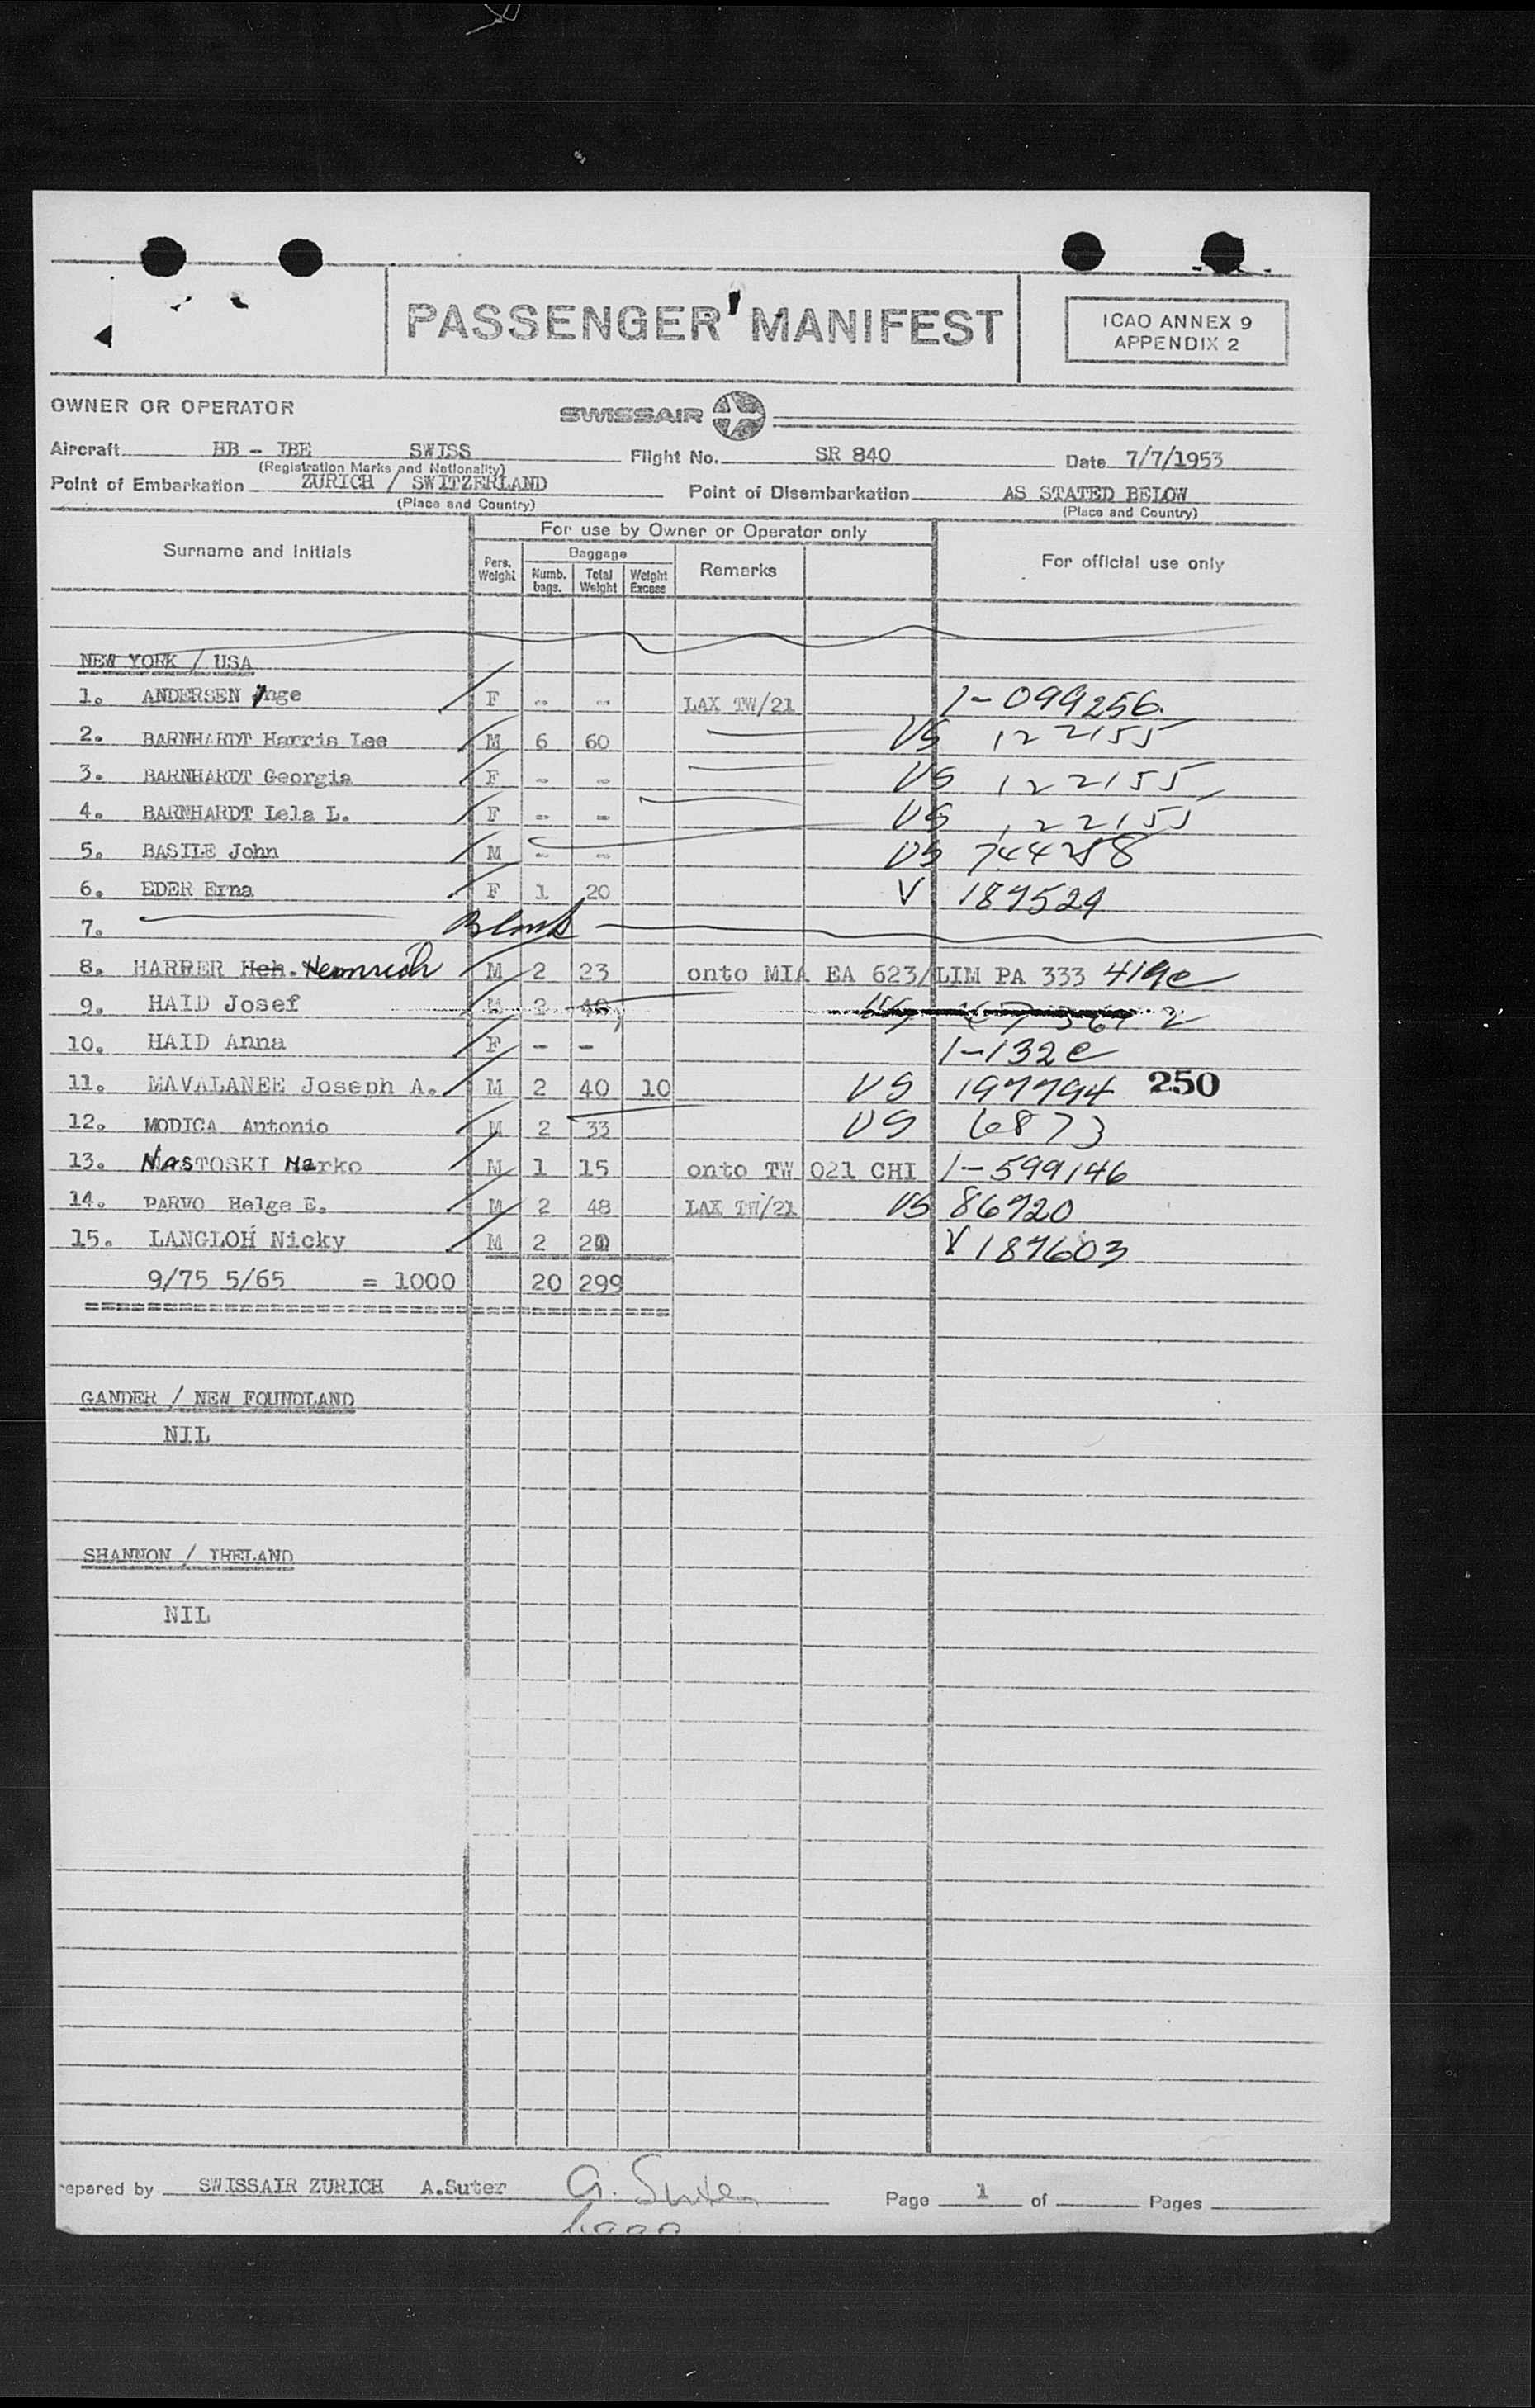 PASSENGER MANIFEST
ICAO ANNEX 9
APPENDIX 2
OWNER OR OPERATOR
SWISSAIR
Aircraft HB - IBE SWISS Flight No. SR 840 Date 7/7/1953
(Registration Marks and Nationality)
Point of Embarkation ZURICH / SWITZERLAND Point of Disembarkation AS STATED BELOW
(Place and Country) (Place and Country)
For use by Owner or Operator only
Surname and Initials Pers. Weight Baggage Numb. bags. Total Weight Weight Excess Remarks For official use only
NEW YORK / USA
1. ANDERSEN Inge F - - LAX TW/21 1-099256
2. BARNHARDT Harris Lee M 6 60 US 122155
3. BARNHARDT Georgia F - - US 122155
4. BARNHARDT Lela L. F - - US 122155
5. BASILE John M - - US
6. EDER Erna F 1 20 V 187529
7. Blank
8. HARRER Hch. Heinrich M 2 23 onto MIA EA 623/LIM PA 333 419c
9. HAID Josef M 2
10. HAID Anna F - - 1-132c
11. MAVALANEE Joseph A. M 2 40 10 US 197794 250
12. MODICA Antonio M 2 33 US 6873
13. NasTOSKI Marko M 1 15 onto TW 021 CHI 1-599146
14. PARVO Helge E. M 2 48 LAX TW/21 US 86720
15. LANGLOH Nicky M 2 20 V 187603
9/75 5/65 = 1000 20 299
GANDER / NEW FOUNDLAND
NIL
SHANNON / IRELAND
NIL
repared by SWISSAIR ZURICH A.Suter G. Suter Page 1 of Pages